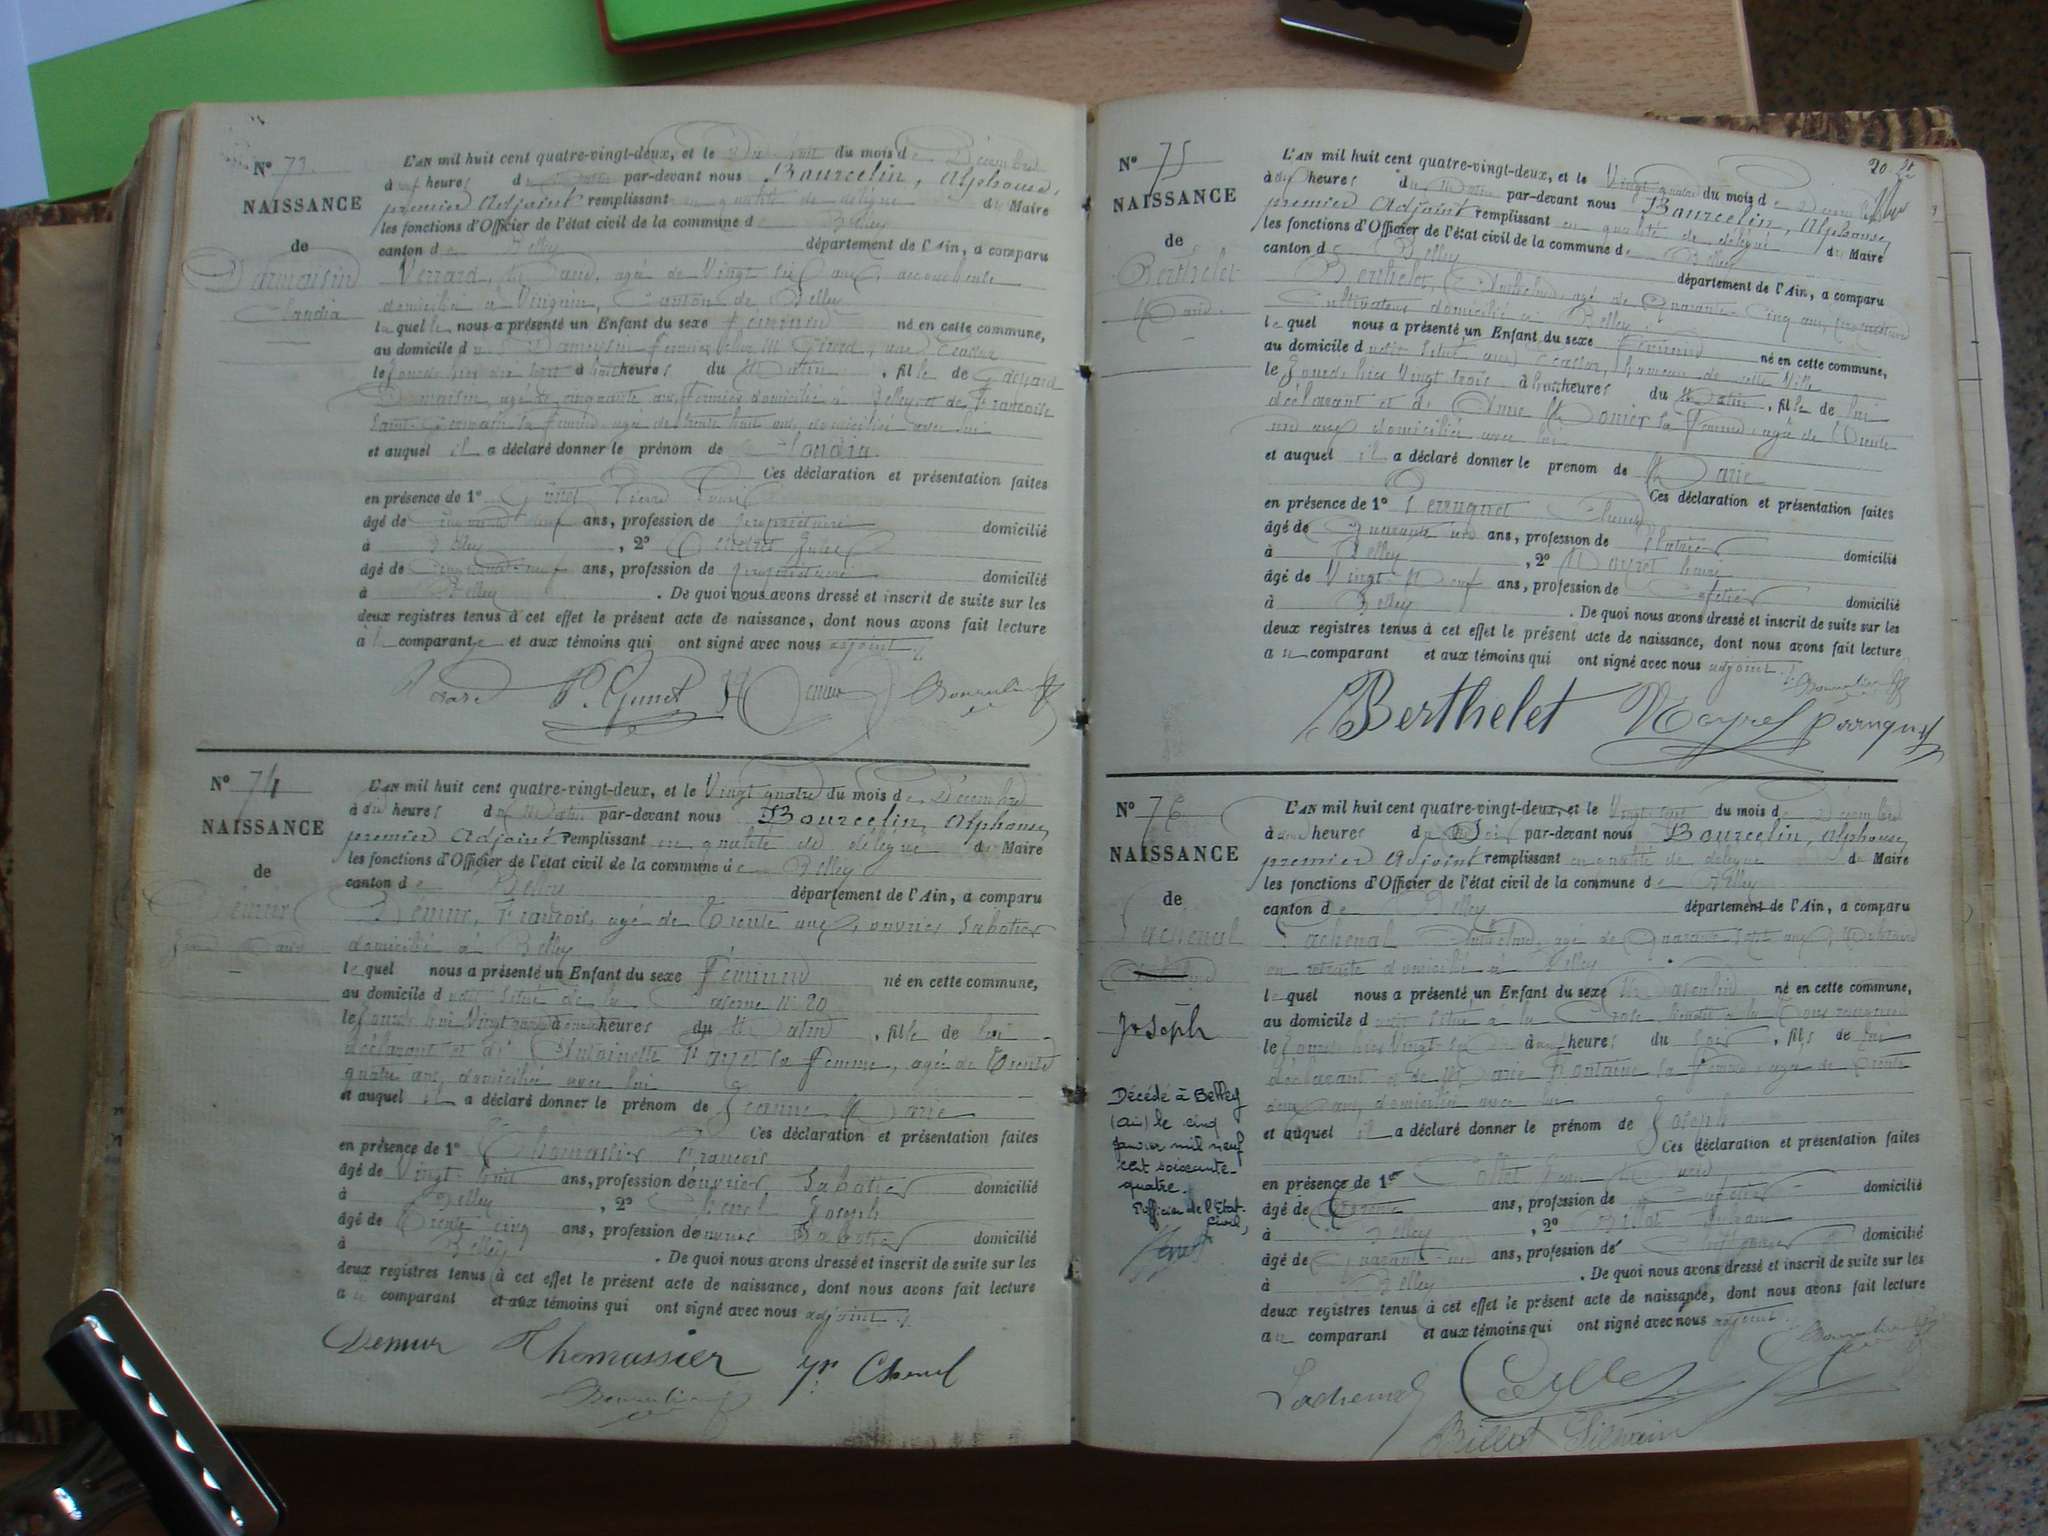 N° 73
NAISSANCE
de
Damaisin
Claudia
L'AN mil huit cent quatre-vingt-deux, et le Dix huit du mois de Décembre
à neuf heures du Matin par-devant nous Bourcelin, Alphonse,
premier Adjoint remplissant en qualité de délégué du Maire
les fonctions d'Officier de l'état civil de la commune de Belley
canton de Belley département de l'Ain, a comparu
agée de Vingt six ans, accoucheuse
domiciliée à Virignin, Canton de Belley
laquelle nous a présenté un Enfant du sexe Féminin né en cette commune,
au domicile du
le jourdhier dix sept à heures du Matin, fille de Gaspard
Damaisin, agé de cinquante ans, Fermier domicilié à Belley et de Françoise
Saint Germain sa femme, agée de trente huit ans, domiciliée avec lui
et auquel il a déclaré donner le prénom de Claudia.
Ces déclaration et présentation faites
en présence de 1° Gunet Pierre
âgé de Cinquante neuf ans, profession de propriétaire domicilié
à Belley, 2°
âgé de Cinquante-neuf ans, profession de propriétaire domicilié
à Belley. De quoi nous avons dressé et inscrit de suite sur les
deux registres tenus à cet effet le présent acte de naissance, dont nous avons fait lecture
à la comparante et aux témoins qui ont signé avec nous adjoint ./.
P. Gunet Bourcelin
N° 74
NAISSANCE
de
Démur
Jeanne Marie
L'AN mil huit cent quatre-vingt-deux, et le Vingt quatre du mois de Décembre
à dix heures du Matin par-devant nous Bourcelin, Alphonse,
premier Adjoint remplissant en qualité de délégué du Maire
les fonctions d'Officier de l'état civil de la commune de Belley
canton de Belley département de l'Ain, a comparu
Démur, François, agé de Trente ans, ouvrier Sabotier
domicilié à Belley
lequel nous a présenté un Enfant du sexe Féminin né en cette commune,
au domicile du situé de la Caserne N° 20
le jourdhui Vingt quatre à heures du Matin, fille de lui
déclarant et d'Antoinette Payet sa Femme, agée de Trente
quatre ans, domiciliée avec lui
et auquel il a déclaré donner le prénom de Jeanne Marie
Ces déclaration et présentation faites
en présence de 1° Thomassier François
âgé de Vingt-huit ans, profession d'ouvrier Sabotier domicilié
à Belley, 2° Chenel Joseph
âgé de Trente cinq ans, profession de ouvrier Sabotier domicilié
à Belley. De quoi nous avons dressé et inscrit de suite sur les
deux registres tenus à cet effet le présent acte de naissance, dont nous avons fait lecture
au comparant et aux témoins qui ont signé avec nous adjoint ./.
Demur Thomassier Chenel
Bourcelin
20
N° 75
NAISSANCE
de
Berthelet
Marie.
L'AN mil huit cent quatre-vingt-deux, et le Vingt quatre du mois de Décembre
à dix heures du Matin par-devant nous Bourcelin, Alphonse,
premier Adjoint remplissant en qualité de délégué du Maire
les fonctions d'Officier de l'état civil de la commune de Belley
canton de Belley département de l'Ain, a comparu
Berthelet, Anthelme, agé de Quarante-cinq ans, propriétaire
Cultivateur domicilié à Belley
lequel nous a présenté un Enfant du sexe Féminin né en cette commune,
au domicile du situé aux Ecassaz, hameau de cette Ville
le jourdhier Vingt trois à heures du Matin, fille de lui
déclarant et d'Anne Monier sa Femme, agée de Trente
neuf ans domiciliée avec lui
et auquel il a déclaré donner le prénom de Marie
Ces déclaration et présentation faites
en présence de 1° Perruquet
âgé de Quarante ans, profession de Platrier domicilié
à Belley, 2° Mayret henri
âgé de Vingt-Neuf ans, profession de Cafetier domicilié
à Belley. De quoi nous avons dressé et inscrit de suite sur les
deux registres tenus à cet effet le présent acte de naissance, dont nous avons fait lecture
au comparant et aux témoins qui ont signé avec nous adjoint ./. Bourcelin
Berthelet Mayret perruquet
N° 76
NAISSANCE
de
Lachenal
Joseph
L'AN mil huit cent quatre-vingt-deux, et le Vingt sept du mois de Décembre
à heures du Soir par-devant nous Bourcelin, Alphonse,
premier Adjoint remplissant en qualité de délégué du Maire
les fonctions d'Officier de l'état civil de la commune de Belley
canton de Belley département de l'Ain, a comparu
Lachenal Anthelme, agé de Quarante sept ans,
en retraite domicilié à Belley
lequel nous a présenté un Enfant du sexe Masculin né en cette commune,
au domicile du situé à la
le jourdhier Vingt-six à heures du Soir, fils de lui
déclarant et de Marie Fontaine sa Femme, agée de Trente
deux ans, domiciliée avec lui
et auquel il a déclaré donner le prénom de Joseph
Ces déclaration et présentation faites
en présence de 1er
âgé de ans, profession de Cafetier domicilié
à Belley, 2° Billot Silvain
âgé de Quarante ans, profession de domicilié
à Belley. De quoi nous avons dressé et inscrit de suite sur les
deux registres tenus à cet effet le présent acte de naissance, dont nous avons fait lecture
au comparant et aux témoins qui ont signé avec nous adjoint ./.
Décédé à Belley
(Ain) le cinq
janvier mil neuf
cent soixante-
quatre.
l'officier de l'Etat-
Civil,
Lachenal Bourcelin
Billot Silvain